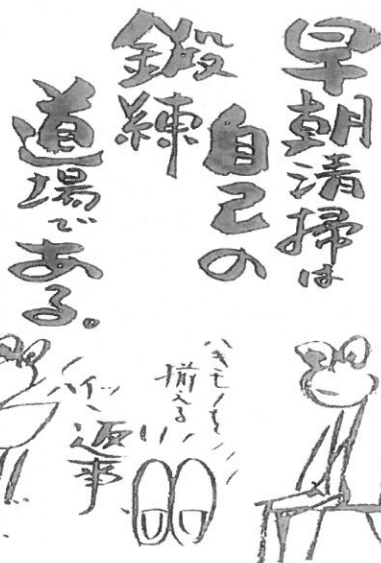 早朝清掃は
自己の
鍛練
道場である。
ハキモノを
揃える
ハイッ
返事